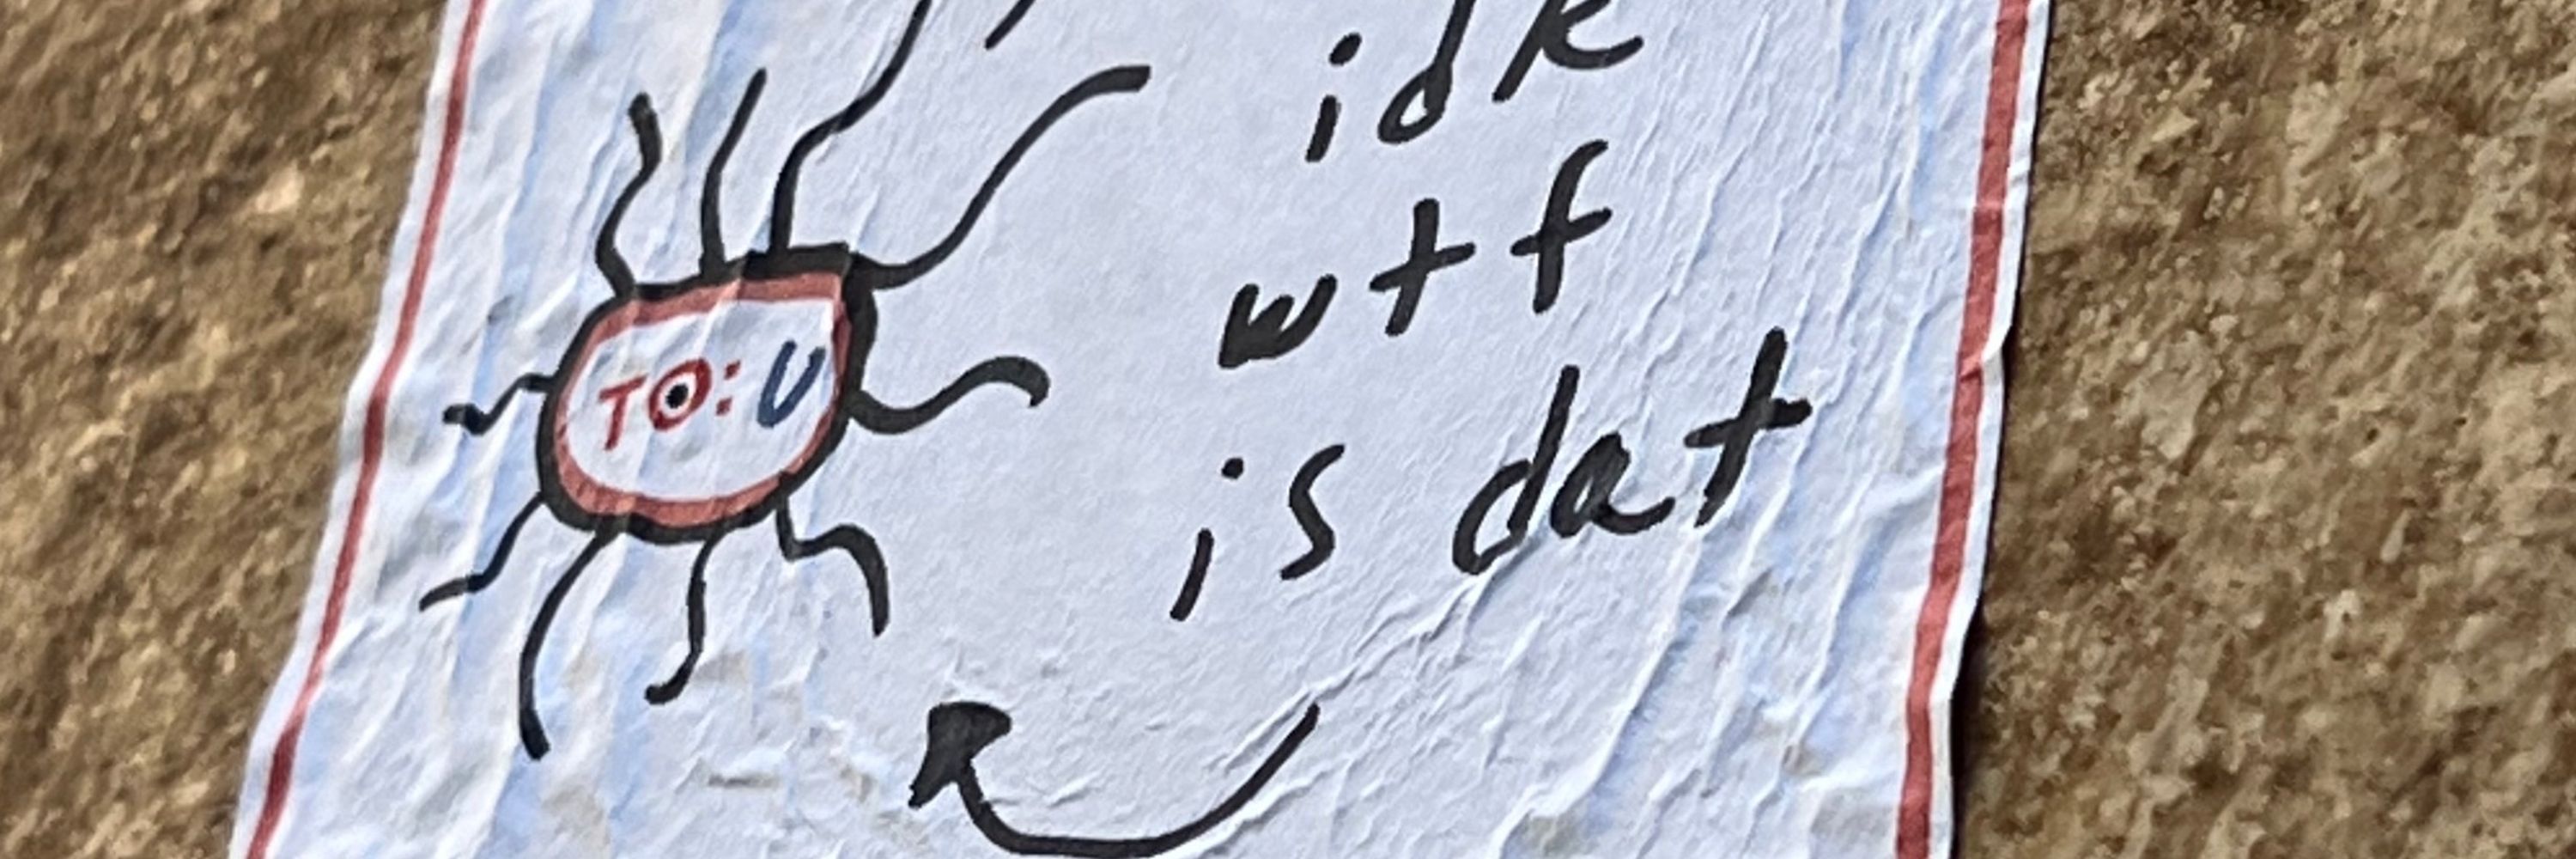 idk
wtf
TO: U
is dat